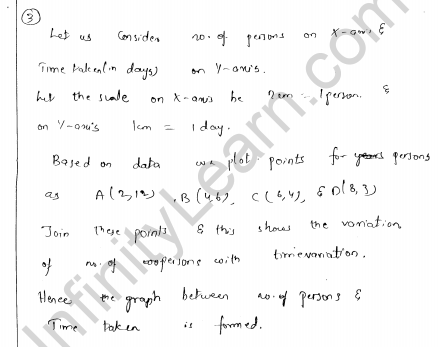 3
Let us Consider no. of persons on X-axis &
Time taken(in days) on Y-axis.
Let the scale on X-axis be 2cm = 1person. &
on Y-axis 1cm = 1 day.
Based on data we plot points for persons
as A(2,12), B(4,6), C(6,4), & D(8,3)
Join these points & this shows the variation
of no. of persons with time variation.
Hence the graph between no. of persons &
Time taken is formed.
InfinityLearn.com